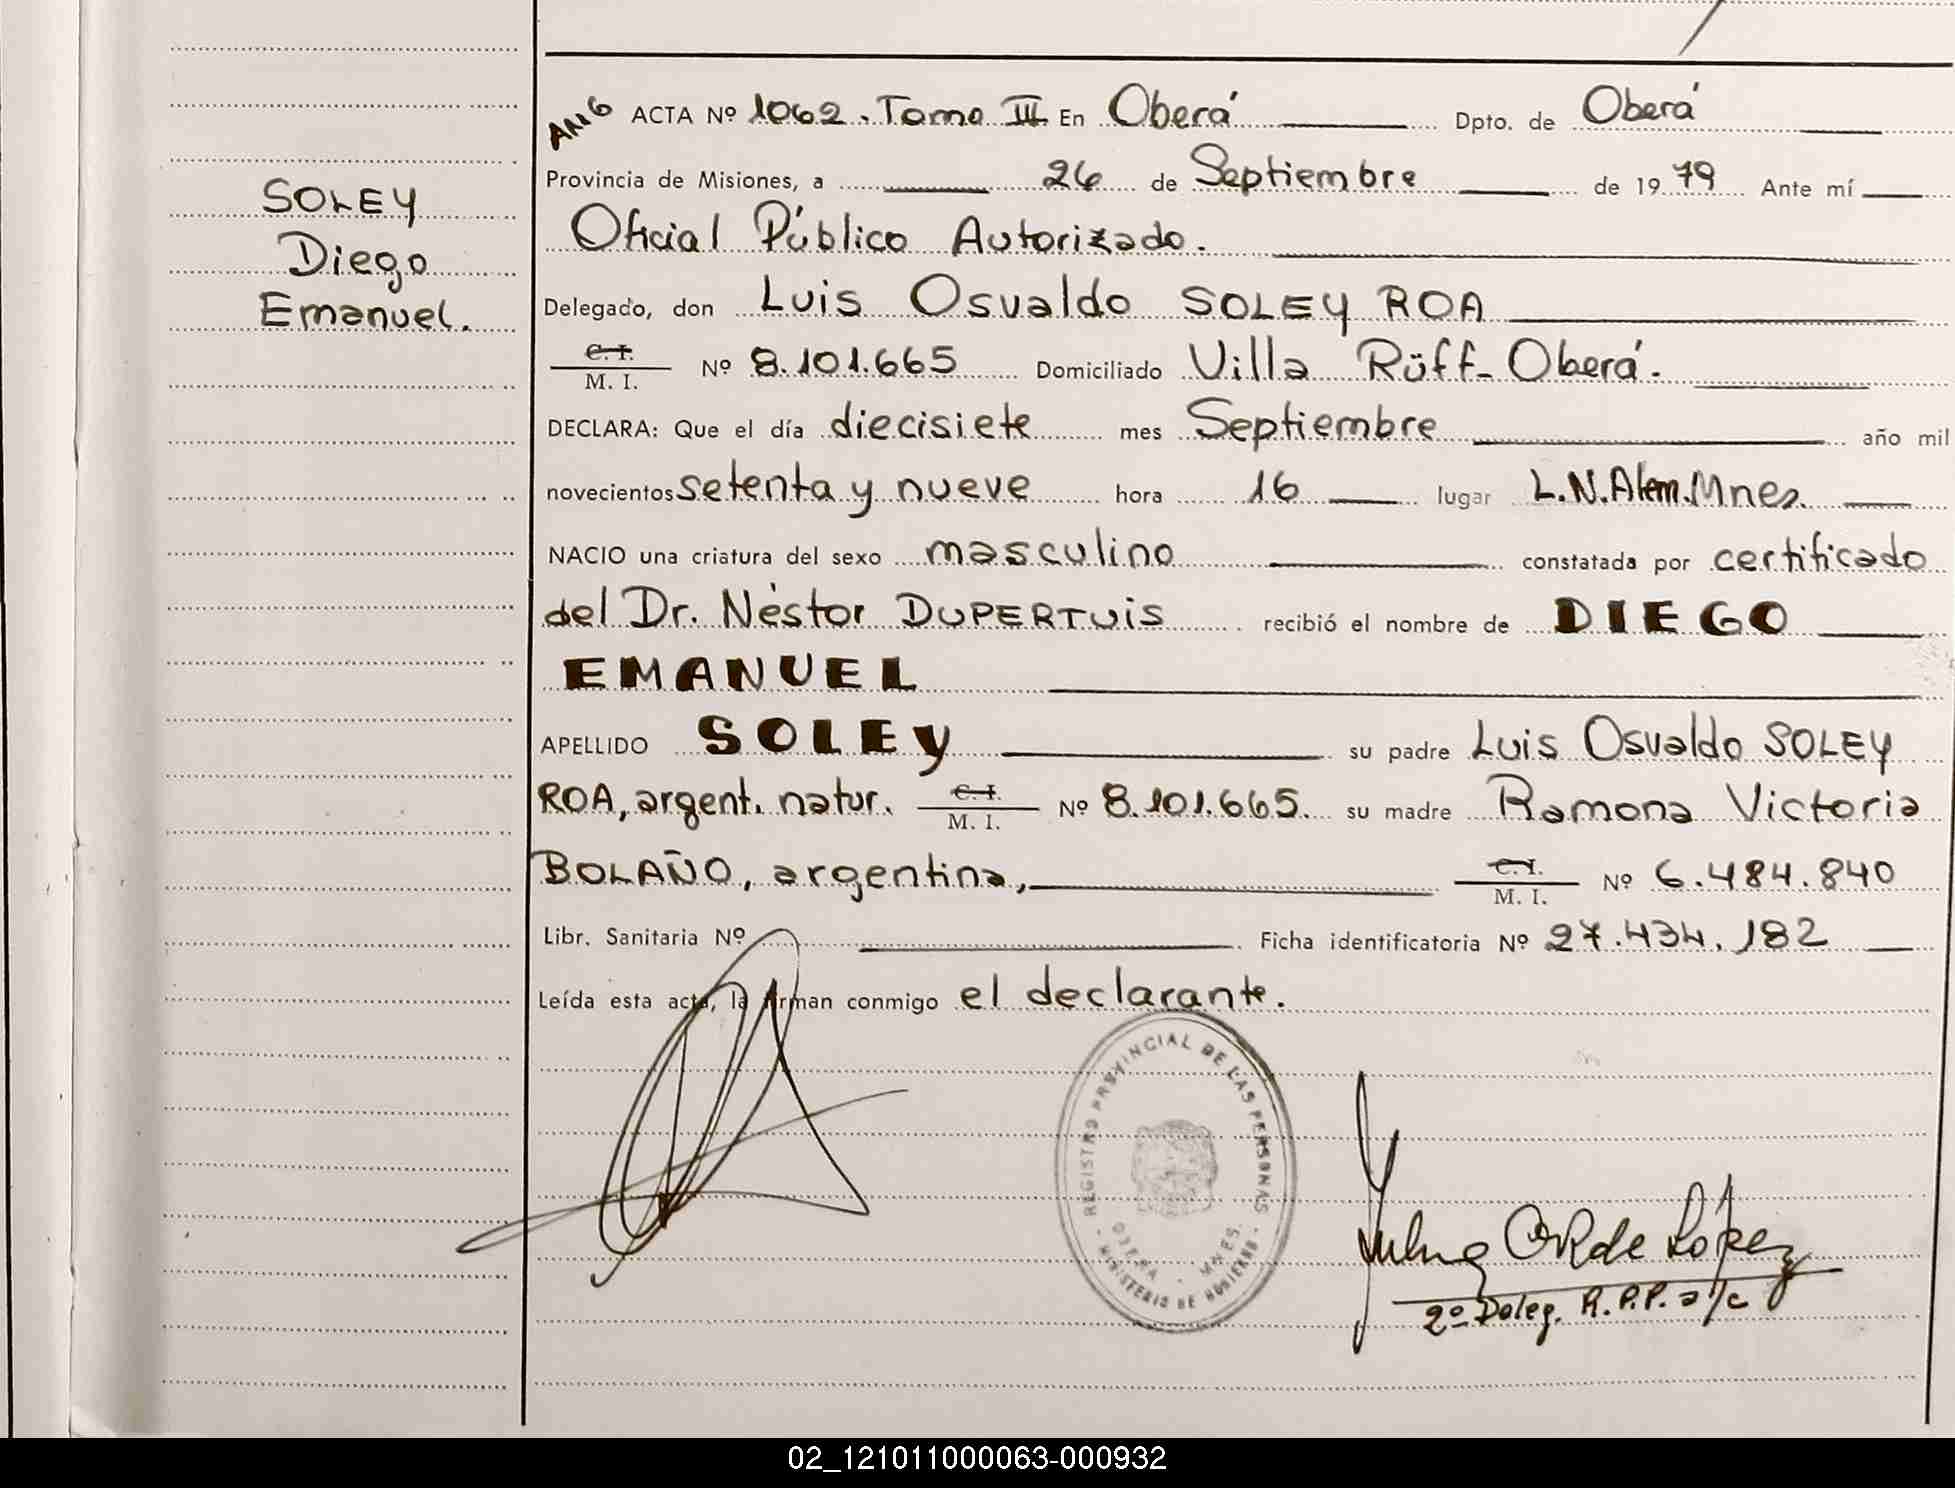 SOLEY
Diego
Emanuel.
ACTA Nº 1062. Tomo III En Oberá Dpto. de Oberá
Provincia de Misiones, a 26 de Septiembre de 1979 Ante mí
Oficial Público Autorizado.
Delegado, don Luis Osvaldo SOLEY ROA
C. I.
M. I. Nº 8.101.665 Domiciliado Villa Rüff-Oberá.
DECLARA: Que el día diecisiete mes Septiembre año mil
novecientos setenta y nueve hora 16 lugar L.N.Alem.Mnes.
NACIO una criatura del sexo masculino constatada por certificado
del Dr. Néstor DUPERTUIS recibió el nombre de DIEGO
EMANUEL
APELLIDO SOLEY su padre Luis Osvaldo SOLEY
ROA, argent. natur. C. I. M. I. Nº 8.101.665. su madre Ramona Victoria
BOLAÑO, argentina, C. I. M. I. Nº 6.484.840
Libr. Sanitaria Nº Ficha identificatoria Nº 27.434.182
Leída esta acta, la firman conmigo el declarante.
REGISTRO PROVINCIAL DE LAS PERSONAS
OBERA - MNES.
MINISTERIO DE GOBIERNO
de López
2º Deleg. R.P.P. a/c
02_121011000063-000932